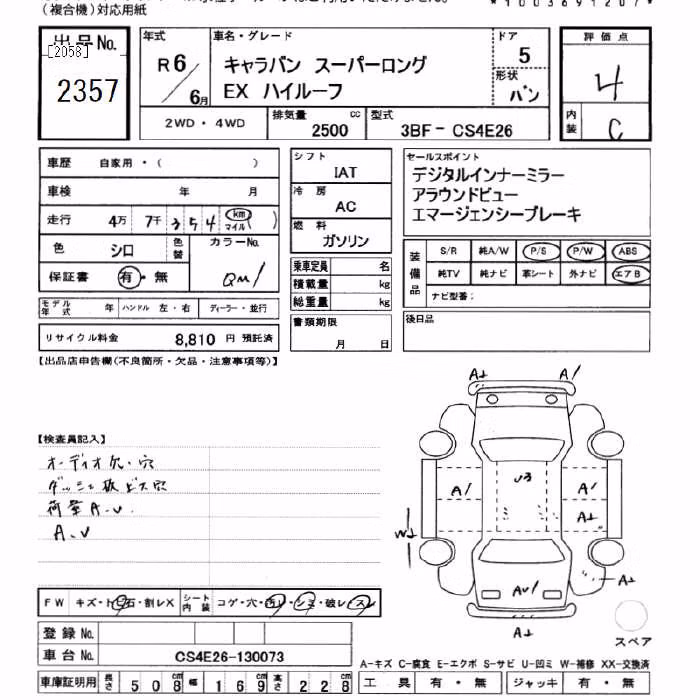 (複合機)対応用紙
*1003691207*
出品No.
[2058]
2357
年式
R6/6月
車名・グレード
キャラバン スーパーロング
EX ハイルーフ
ドア
5
形状
バン
評価点
4
内装
C
2WD・4WD
排気量
2500
cc
型式
3BF-CS4E26
車歴 自家用・( )
車検 年 月
走行 4万 7千 354 (km マイル)
色 シロ
色替
カラーNo.
QM1
保証書 有・無
モデル年式 年 ハンドル 左・右 ディーラー・並行
リサイクル料金 8,810 円 預託済
シフト
IAT
冷房
AC
燃料
ガソリン
乗車定員 名
積載量 kg
総重量 kg
書類期限
月 日
セールスポイント
デジタルインナーミラー
アラウンドビュー
エマージェンシーブレーキ
装備品
S/R 純A/W P/S P/W ABS
純TV 純ナビ 革シート 外ナビ エアB
ナビ型番:
後日品
【出品店申告欄(不良箇所・欠品・注意事項等)】
【検査員記入】
オーディオ欠・穴
ダッシュ板ビス穴
荷室A.U
A.U
A⊥ A/
U3
A/ A/
A⊥
W⊥
A⊥
AU/
A⊥
スペア
FW キズ・ト石・割レX シート内装 コゲ・穴・汚レ・シミ・破レ・スレ
登録No.
車台No. CS4E26-130073
車庫証明用 長さ 508cm 幅 169cm 高さ 228cm
A-キズ C-腐食 E-エクボ S-サビ U-凹ミ W-補修 XX-交換済
工具 有・無 ジャッキ 有・無